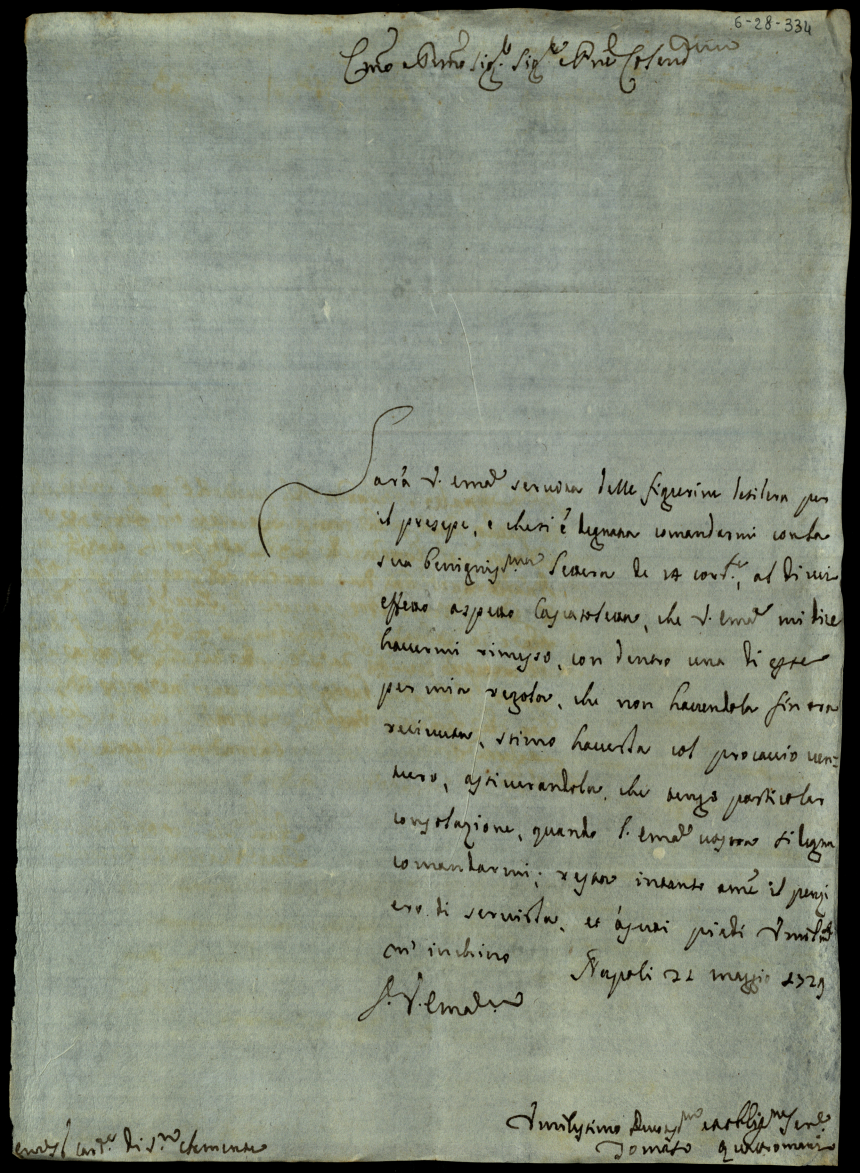 6-28-334
Em.mo e R.mo Sig.r Sig.r e P.ne Col.mo
Sarà V. Em.za servita delle figurine desidera per
il presepe, e che si è degnata comandarmi con la
sua benignis.ma lettera de 14 cor.te, al di cui
effetto aspetto, che V. Em.za mi dice
havermi rimesso, con dentro una di esse
per mia regola, che non havendola fin ora
ricevuta, stimo haverla col procaccio ven=
turo, assicurandola, che tengo particolar
consolazione, quando l'Em.za vostra si degna
comandarmi; resta intanto a me il pensi
ero di servirla, et a' suoi piedi Umil.te
m'inchino Napoli 21 maggio 1729
Di V. Em.za
Umilissimo Devotis.mo et obblig.mo Ser.e
Tomaso Quattromani
Card.le di S.n Clemente